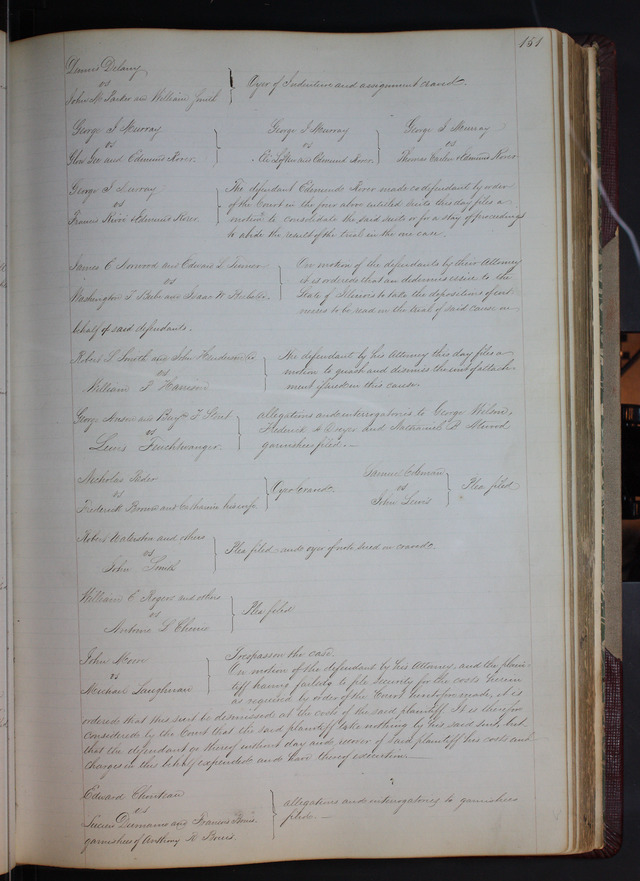 151
Dennis Delany
vs
John M Parker and William Smith
Oyer of Indenture and assignment craved.
George I Murray
vs
and Edmund
George I Murray
vs
Eli and Edmund
George I Murray
vs
Thomas &
George I Murray
vs
Francis &
The defendant made co defendant by order
of the Court in the four above entitled suits this day files a
motion to consolidate the said suits or for a stay of proceedings
to abide the result of the trial in the one case.
James C and Edward L
vs
Washington T and Isaac W
On motion of the defendants by their Attorney
it is ordered that an dedimus issue to the
State of Illinois to take the depositions of wit-
nesses to be read on the trial of said cause on
behalf of said defendants.
Robert L Smith and John Henderson
vs
William P Harrison
The defendant by his Attorney this day files a
motion to quash and dismiss the writ of attach-
ment in this cause
George and Benjn F
vs
Lewis Feuchtwanger.
allegations and interrogatories to George
Frederick and Nathaniel P Atwood
garnishees filed.—
Nicholas
vs
Frederick Brown and Catharine his wife
Oyer craved
Samuel
vs
John Lewis
Plea filed
Robert and others
vs
John Smith
Plea filed and oyer of note sued on craved.
William C Rogers and others
vs
Antoine L Chenie
Plea filed
John
vs
Michael Laughman
Trespass on the case.
On motion of the defendant by his Attorney, and the plain-
tiff having failed to file security for the costs herein
as required by order of the Court heretofore made, it is
ordered that this suit be dismissed at the costs of the said plaintiff It is therefore
considered by the Court that the said plaintiff take nothing by his said suit, but
that the defendant go thereof without day and recover of said plaintiff his costs and
charges in this behalf expended and have thereof execution.—
Edward Christian
vs
Lucien Dumaine and Francis
garnishees of Anthony R
allegations and interrogatories to garnishees
filed.—